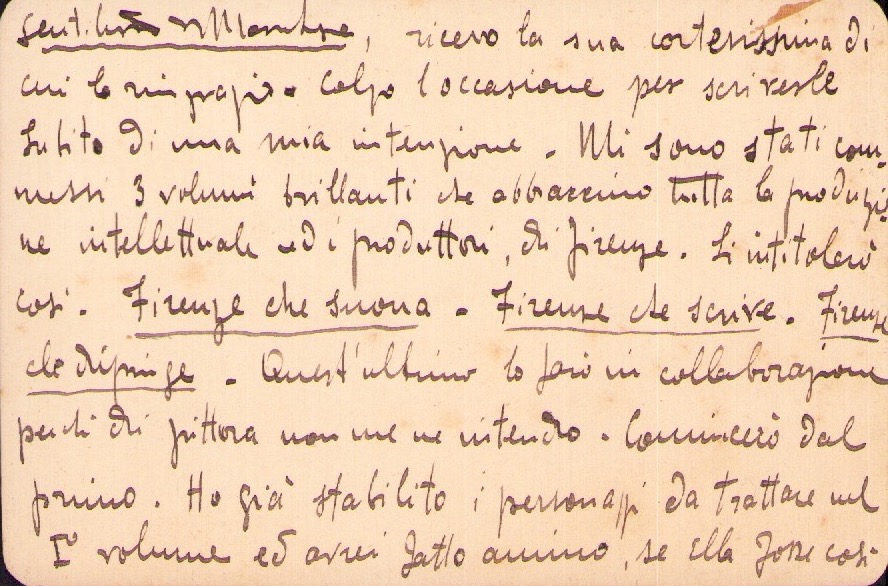 ricevo la sua cortesissima di
cui la ringrazio. Colgo l'occasione per scriverle
subito di una mia intenzione. Mi sono stati com-
messi 3 volumi brillanti che abbraccino tutta la produzio
ne intellettuale ed i produttori, di Firenze. Li intitolerò
così. Firenze che suona - Firenze che scrive. Firenze
che dipinge. Quest'ultimo lo farò in collaborazione
perchè di pittora non me ne intendo. Comincerò dal
primo. Ho già stabilito i personaggi da trattare nel
I° volume ed avrei fatto animo, se Ella fosse così